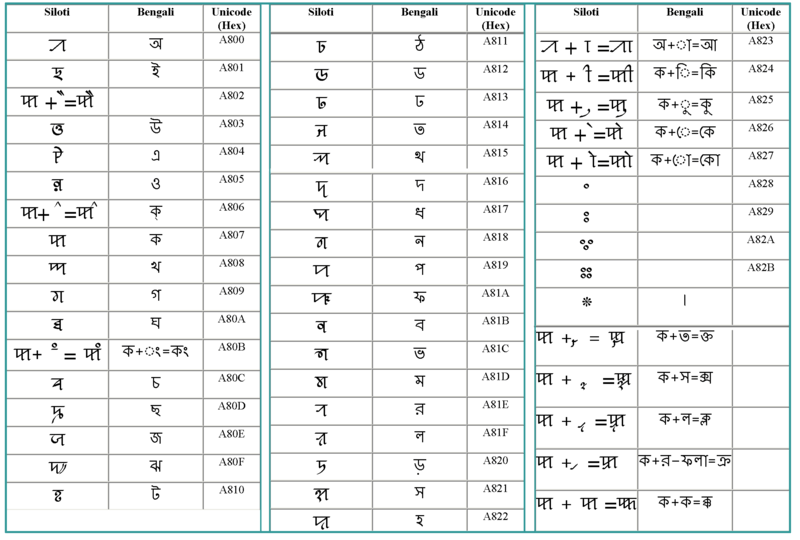 Siloti Bengali Unicode (Hex)
ꠀ অ A800
ꠁ ই A801
ꠇ + ꠂ = ꠇꠂ A802
ꠃ উ A803
ꠄ এ A804
ꠅ ও A805
ꠇ+ ꠆ =ꠇ꠆ ক্ A806
ꠇ ক A807
ꠈ খ A808
ꠉ গ A809
ꠊ ঘ A80A
ꠇ+ ꠋ = ꠇꠋ ক+ং=কং A80B
ꠌ চ A80C
ꠍ ছ A80D
ꠎ জ A80E
ꠏ ঝ A80F
ꠐ ট A810
Siloti Bengali Unicode (Hex)
ꠑ ঠ A811
ꠒ ড A812
ꠓ ঢ A813
ꠔ ত A814
ꠕ থ A815
ꠖ দ A816
ꠗ ধ A817
ꠘ ন A818
ꠙ প A819
ꠚ ফ A81A
ꠛ ব A81B
ꠜ ভ A81C
ꠝ ম A81D
ꠞ র A81E
ꠟ ল A81F
ꠠ ড় A820
ꠡ স A821
ꠢ হ A822
Siloti Bengali Unicode (Hex)
ꠀ + ꠣ =ꠀꠣ অ+া=আ A823
ꠇ + ꠤ=ꠇꠤ ক+ি=কি A824
ꠇ +ꠥ =ꠇꠥ ক+ু=কু A825
ꠇ +ꠦ =ꠇꠦ ক+ে=কে A826
ꠇ + ꠧ=ꠇꠧ ক+ো=কো A827
꠨ A828
꠩ A829
꠪ A82A
꠫ A82B
❊ ।
ক+ত=ক্ত
ক+স=ক্স
ক+ল=ক্ল
ক+র–ফলা=ক্র
ꠇ + ꠇ =ꠇ꠆ꠇ ক+ক=ক্ক